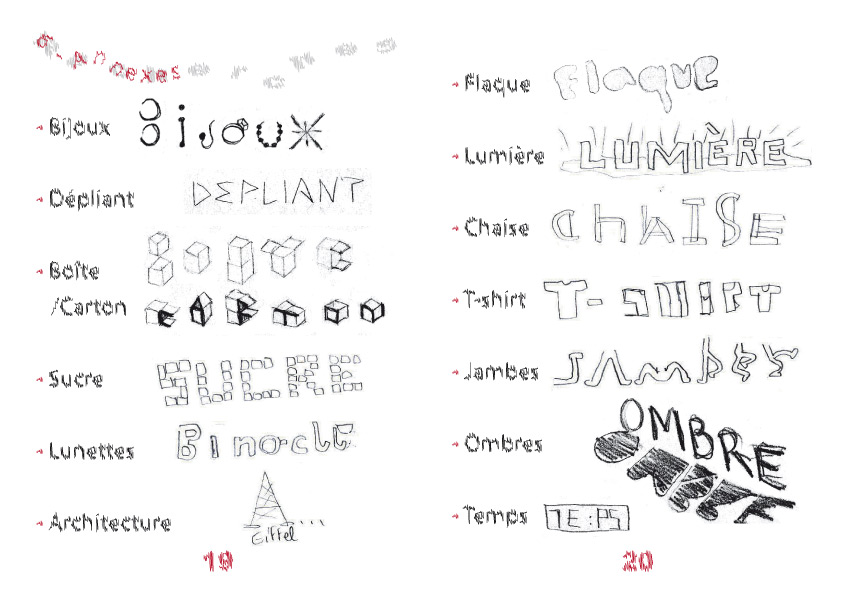 annexes
Bijoux BijOUX
Dépliant DEPLIANT
Boîte BOITE
/Carton CARTON
Sucre SUCRE
Lunettes Binocle
Architecture
Eiffel ...
19
Flaque Flaque
Lumière LUMIÈRE
Chaise ChAISE
T-shirt T-SHIRT
Jambes JAMBES
Ombres OMBRE
Temps TE:PS
20